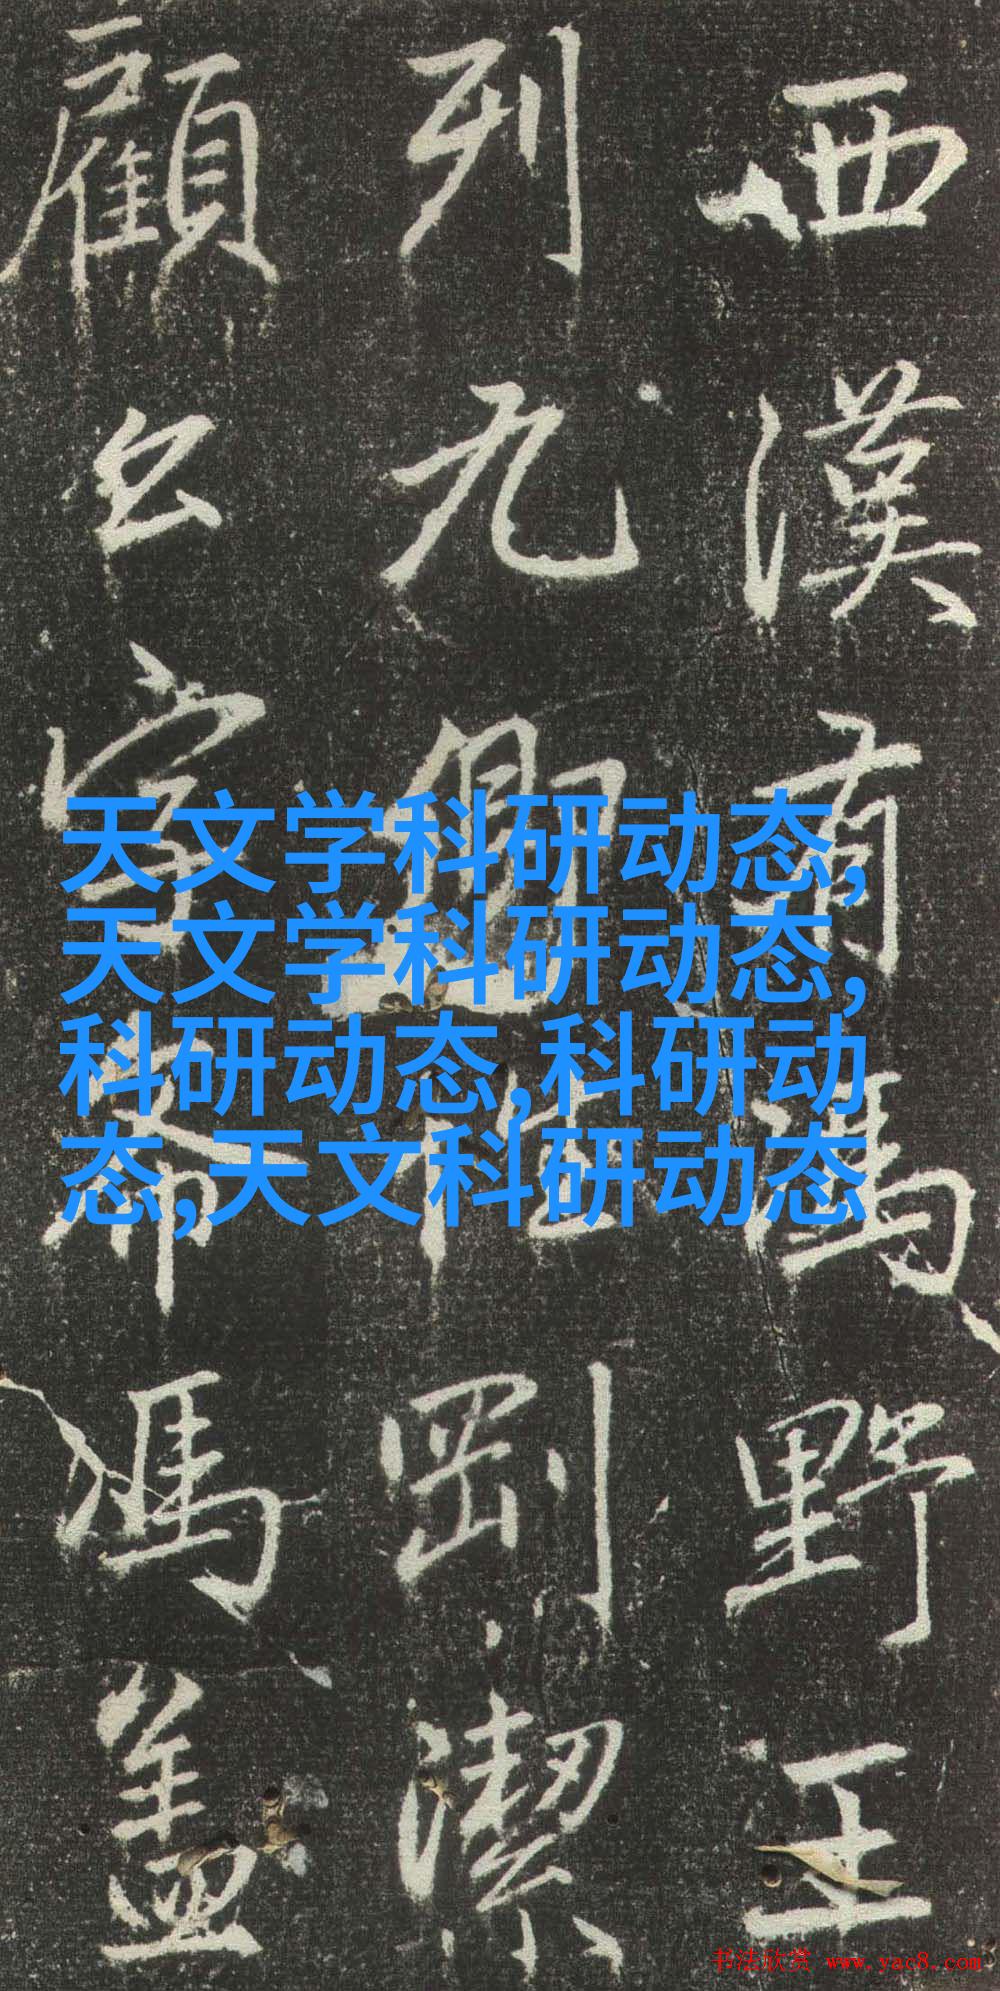 西漢有馮野王
列九卿性剛潔
顧馮盖
天文学科研动态,
天文学科研动态,
科研动态,科研动
态,天文科研动态
书法欣赏 www.yac8.com